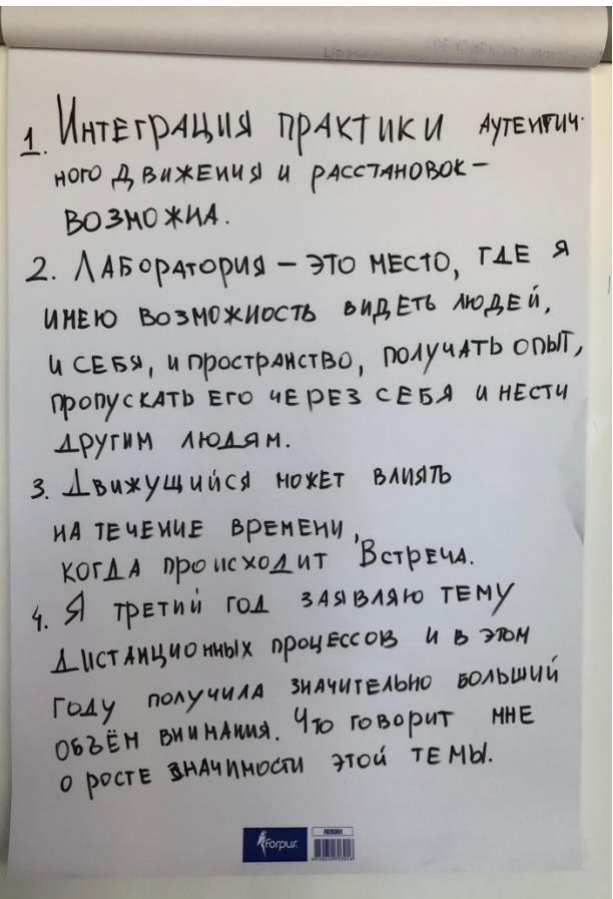 1. Интеграция практики аутентич-
ного движения и расстановок –
возможна.
2. Лаборатория – это место, где я
имею возможность видеть людей,
и себя, и пространство, получать опыт,
пропускать его через себя и нести
другим людям.
3. Движущийся может влиять
на течение времени,
когда происходит Встреча.
4. Я третий год заявляю тему
дистанционных процессов и в этом
году получила значительно больший
объём внимания. Что говорит мне
о росте значимости этой темы.
forpus